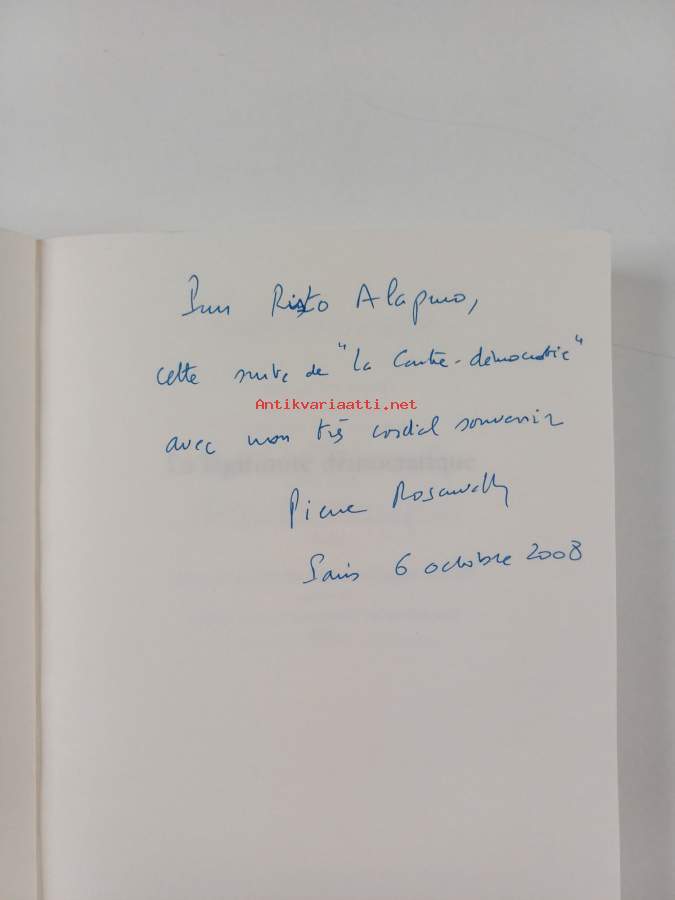 Pour Risto Alapuro,
cette suite de "la Contre-démocratie"
Antikvariaatti.net
avec mon très cordial souvenir
La légitimité démocratique
Pierre Rosanvallon
Paris 6 octobre 2008